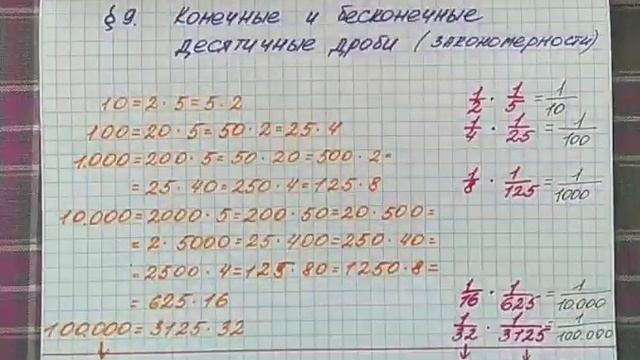 § 9. Конечные и бесконечные
десятичные дроби (закономерности)
10 = 2 · 5 = 5 · 2
100 = 20 · 5 = 50 · 2 = 25 · 4
1.000 = 200 · 5 = 50 · 20 = 500 · 2 =
= 25 · 40 = 250 · 4 = 125 · 8
10.000 = 2000 · 5 = 200 · 50 = 20 · 500 =
= 2 · 5000 = 25 · 400 = 250 · 40 =
= 2500 · 4 = 125 · 80 = 1250 · 8 =
= 625 · 16
100.000 = 3125 · 32
1/2 · 1/5 = 1/10
1/4 · 1/25 = 1/100
1/8 · 1/125 = 1/1000
1/16 · 1/625 = 1/10.000
1/32 · 1/3125 = 1/100.000